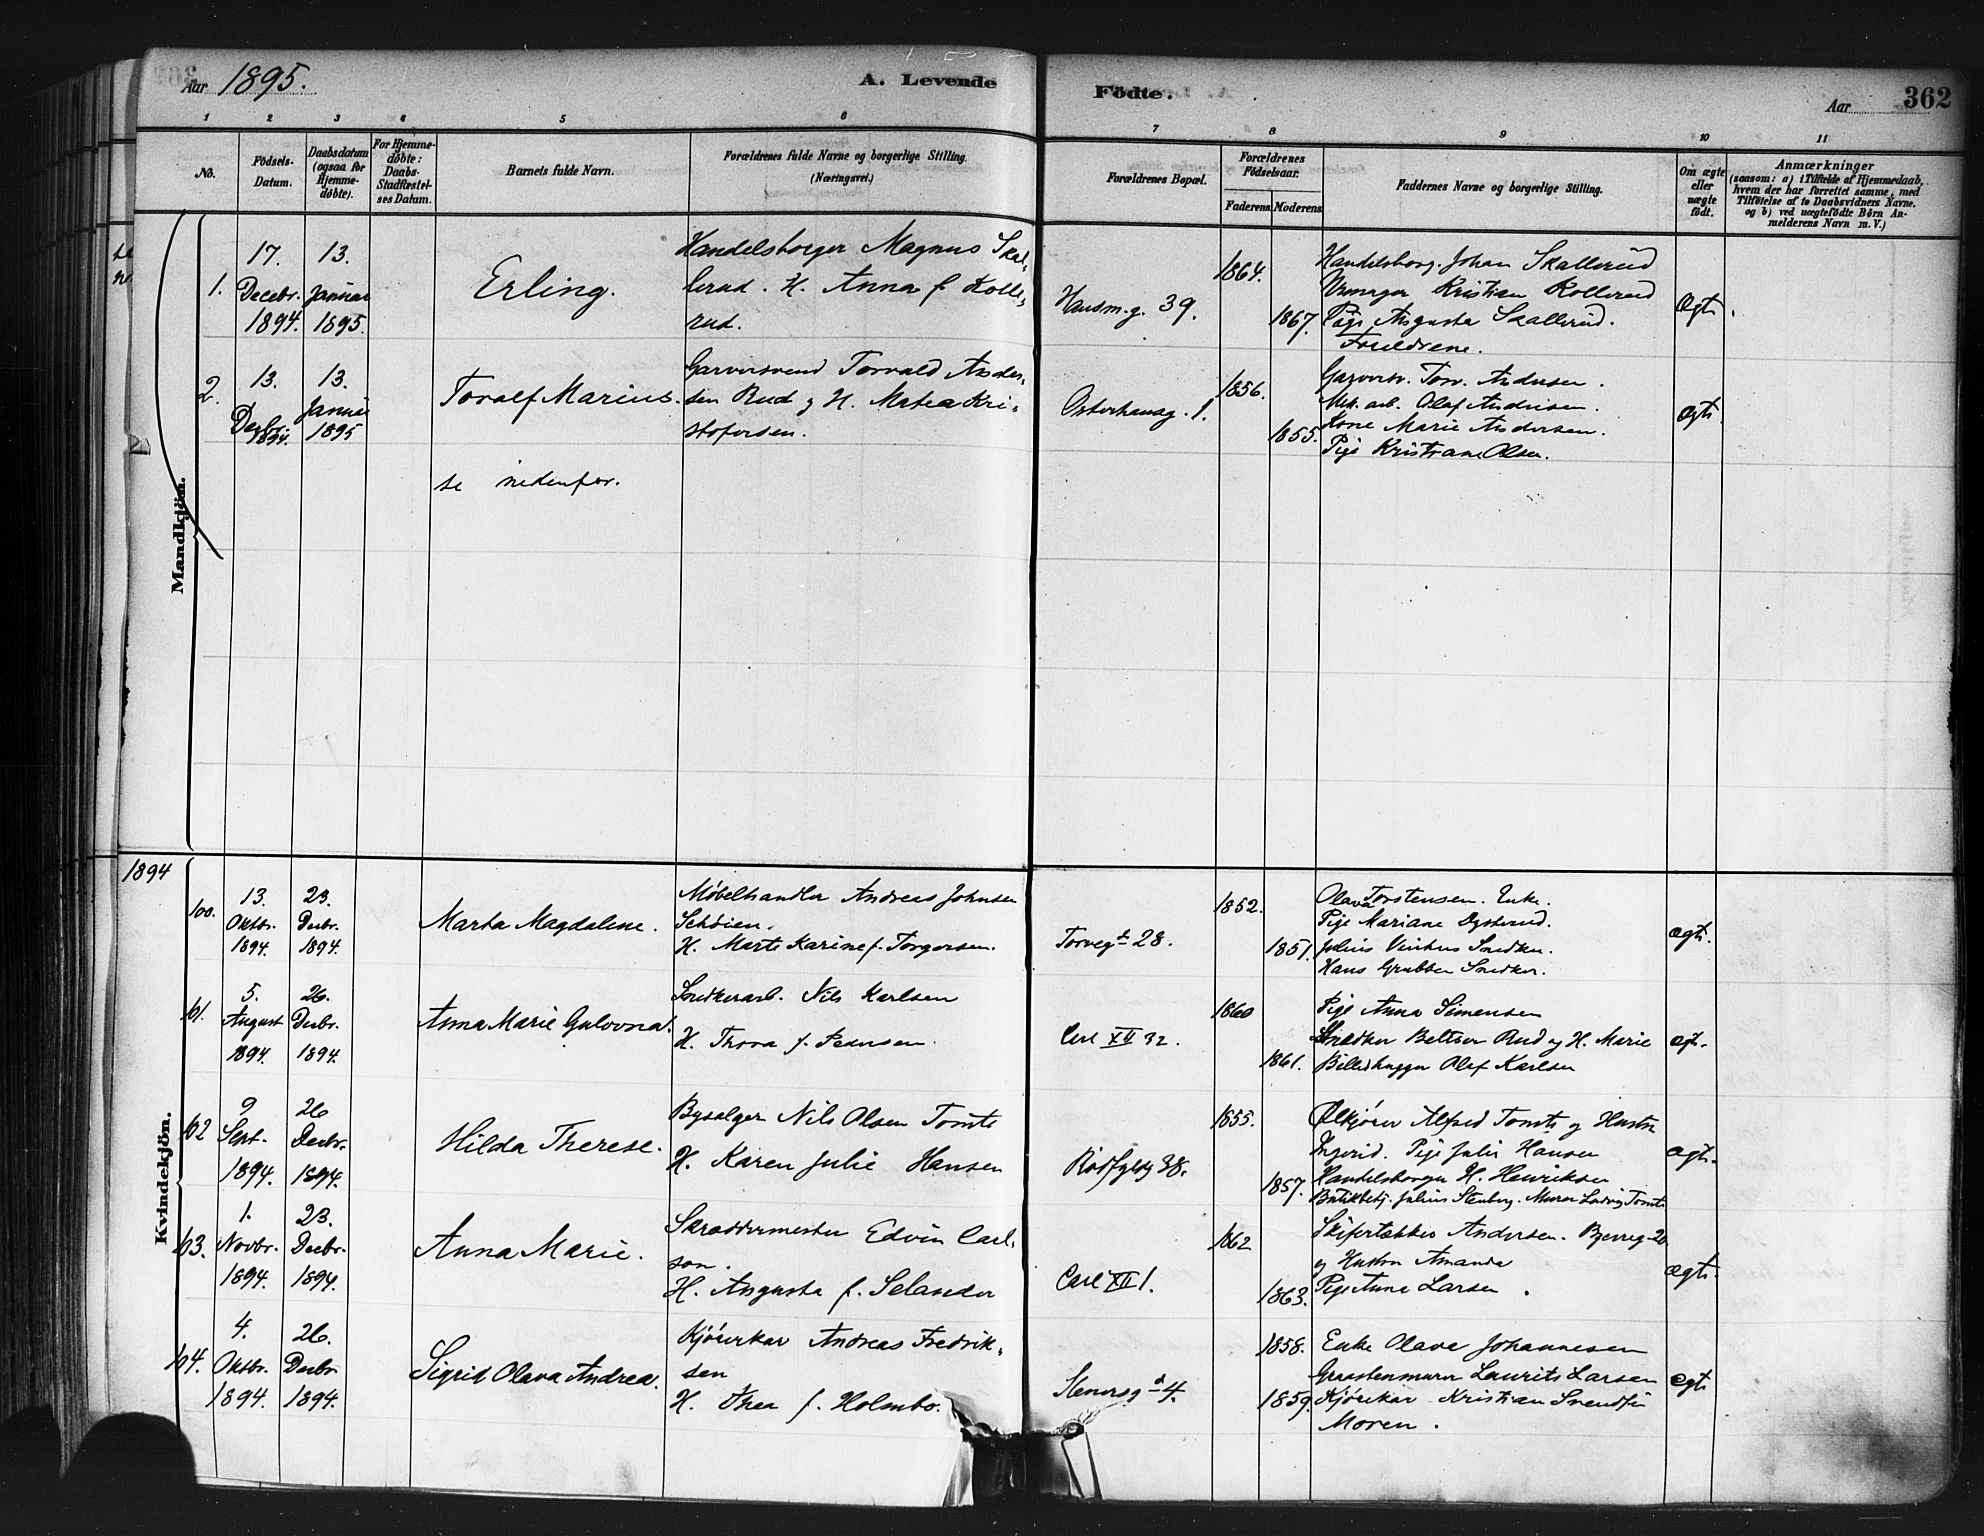 Aar 1895.
A. Levende
Födte.
Aar
362
1 2 3 4 5 6 7 8 9 10 11
No.
Födsels-Datum.
Daabsdatum (ogsaa for Hjemme-döbte).
For Hjemme-döbte: Daabs-Stadfæstel-ses Datum.
Barnets fulde Navn.
Forældrenes fulde Navne og borgerlige Stilling.
(Næringsvei.)
Forældrenes Bopæl.
Forældrenes Födselsaar.
Faderens. Moderens.
Faddernes Navne og borgerlige Stilling.
Om ægte eller uægte födt.
Anmærkninger
(saasom: a) i Tilfælde af Hjemmedaab,
hvem der har forrettet samme, med
Tilföielse af to Daabsvidners Navne.
og b) ved uægtefödte Börn An-
melderens Navn m. V.)
Mandkjön.
1.
17. Decebr. 1894.
13. Januar 1895.
Erling.
Handelsborger Magnus Skal-
lerud. H. Anna f. Kolle-
rud.
Hausm.g. 39.
1864.
1867.
Handelsborg. Johan Skallerud
Urmager Kristian Kollerud
Pige Augusta Skallerud.
Forældrene.
Ægte.
2.
13. Decbr. 1894.
13. Januar 1895
Toralf Marius.
Garversvend Torvald Ander-
sen Rud g H. Matea Kri-
stofersen.
Osterhausg. 1.
1856.
1855.
Garversv. Torv. Andersen.
Mek. arb. Olaf Andersen.
Kone Marie Andersen.
Pige Kristiane Olsen.
Ægte
se nedenfor.
1894
Kvindekjön.
100.
13. Oktbr. 1894
23. Decbr. 1894
Marta Magdalene.
Møbelhandler Andreas Johnsen
Schøien.
H. Marte Karine f. Torgersen.
Torvegt 28.
1852.
1851.
Olava Torstensen. Enke.
Pige Mariane Dysterud.
Julius Snedker.
Hans Grubben Snedker.
ægte.
61.
5. August 1894.
26. Decbr. 1894.
Anna Marie Gulovna.
Snedkerarb. Nils Karlsen
H. Thora f. Pedersen.
Carl XII 32.
1860
1861.
Pige Anna Simensen
Snedker Rud og H. Marie
Billedhugger Olaf Karlsen
62
9 Sept. 1894.
26 Decbr. 1894.
Hilda Therese.
Bysælger Nils Olsen Tomte
H. Karen Julie Hansen
Rødfyldg 38.
1855.
1857.
Ølkjører Alfred Tomte og Hustru
Ingerid. Pige Julie Hansen
Handelsborger H. Henriksen
Butikbetj. Julius Stenberg. Murer Ludvig Tomte
ægte.
63.
1. Novbr. 1894.
23. Decbr. 1894.
Anna Marie.
Skræddermester Edvin Carl-
son.
H. Augusta f. Selander
Carl XII 1.
1862
1863.
Skifertækker Andersen.
og Hustru Amanda
Pige Anne Larsen.
ægte.
64.
4. Oktbr. 1894.
26. Decbr 1894.
Sigrid Olava Andrea.
Kjørerkar Andreas Fredrik-
sen
H. Thea f. Holmbo.
Stenersg 4.
1858.
1859.
Enke Olava Johannesen
Graastensmurer Laurits Larsen
Kjørekar Kristian
Moren.
ægte